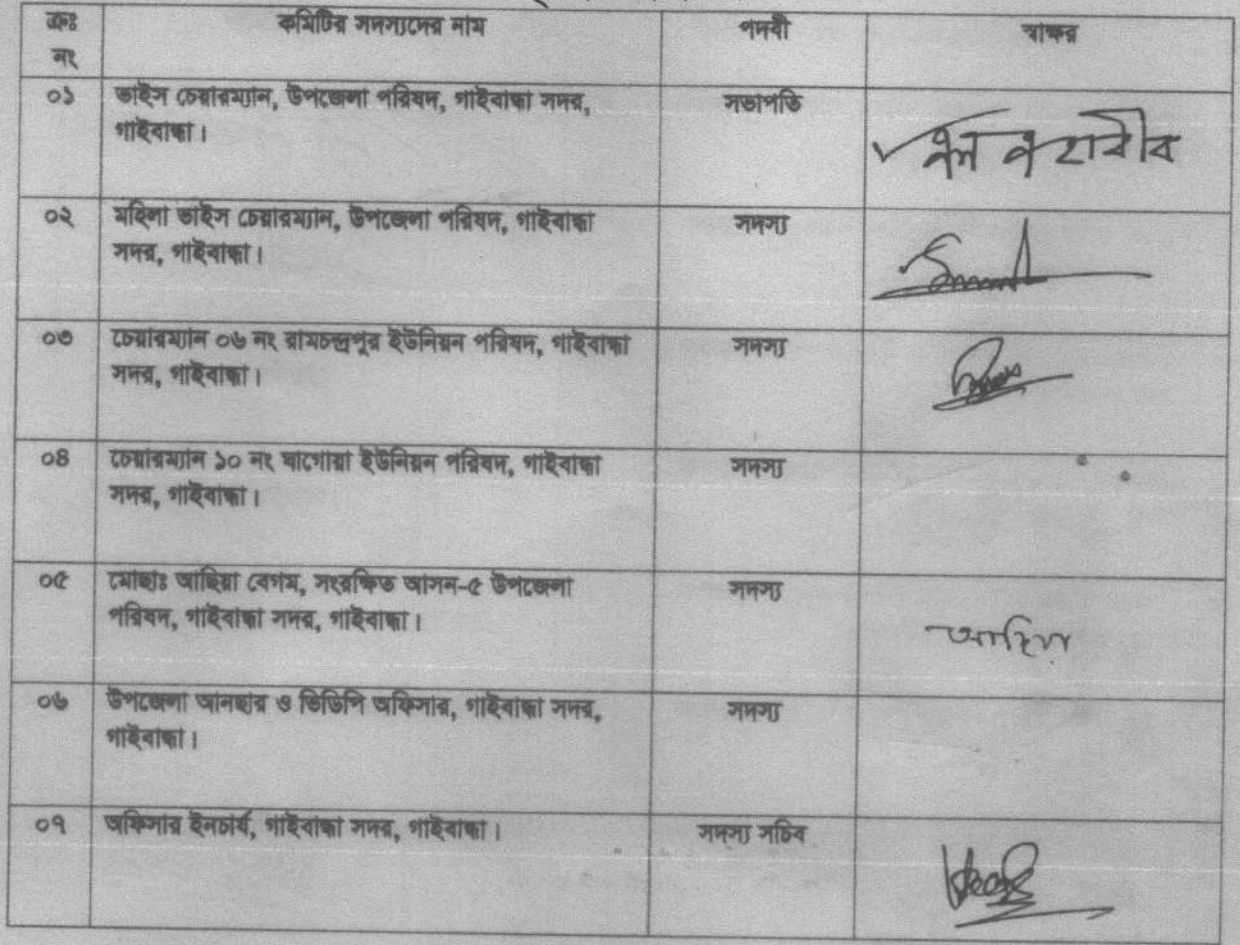 ক্রঃ
নং
কমিটির সদস্যদের নাম
পদবী
স্বাক্ষর
০১
ভাইস চেয়ারম্যান, উপজেলা পরিষদ, গাইবান্ধা সদর,
গাইবান্ধা।
সভাপতি
০২
মহিলা ভাইস চেয়ারম্যান, উপজেলা পরিষদ, গাইবান্ধা
সদর, গাইবান্ধা।
সদস্য
০৩
চেয়ারম্যান ০৬ নং রামচন্দ্রপুর ইউনিয়ন পরিষদ, গাইবান্ধা
সদর, গাইবান্ধা।
সদস্য
০৪
চেয়ারম্যান ১০ নং ঘাগোয়া ইউনিয়ন পরিষদ, গাইবান্ধা
সদর, গাইবান্ধা।
সদস্য
০৫
মোছাঃ আছিয়া বেগম, সংরক্ষিত আসন-৫ উপজেলা
পরিষদ, গাইবান্ধা সদর, গাইবান্ধা।
সদস্য
০৬
উপজেলা আনছার ও ভিডিপি অফিসার, গাইবান্ধা সদর,
গাইবান্ধা।
সদস্য
০৭
অফিসার ইনচার্য, গাইবান্ধা সদর, গাইবান্ধা।
সদস্য সচিব